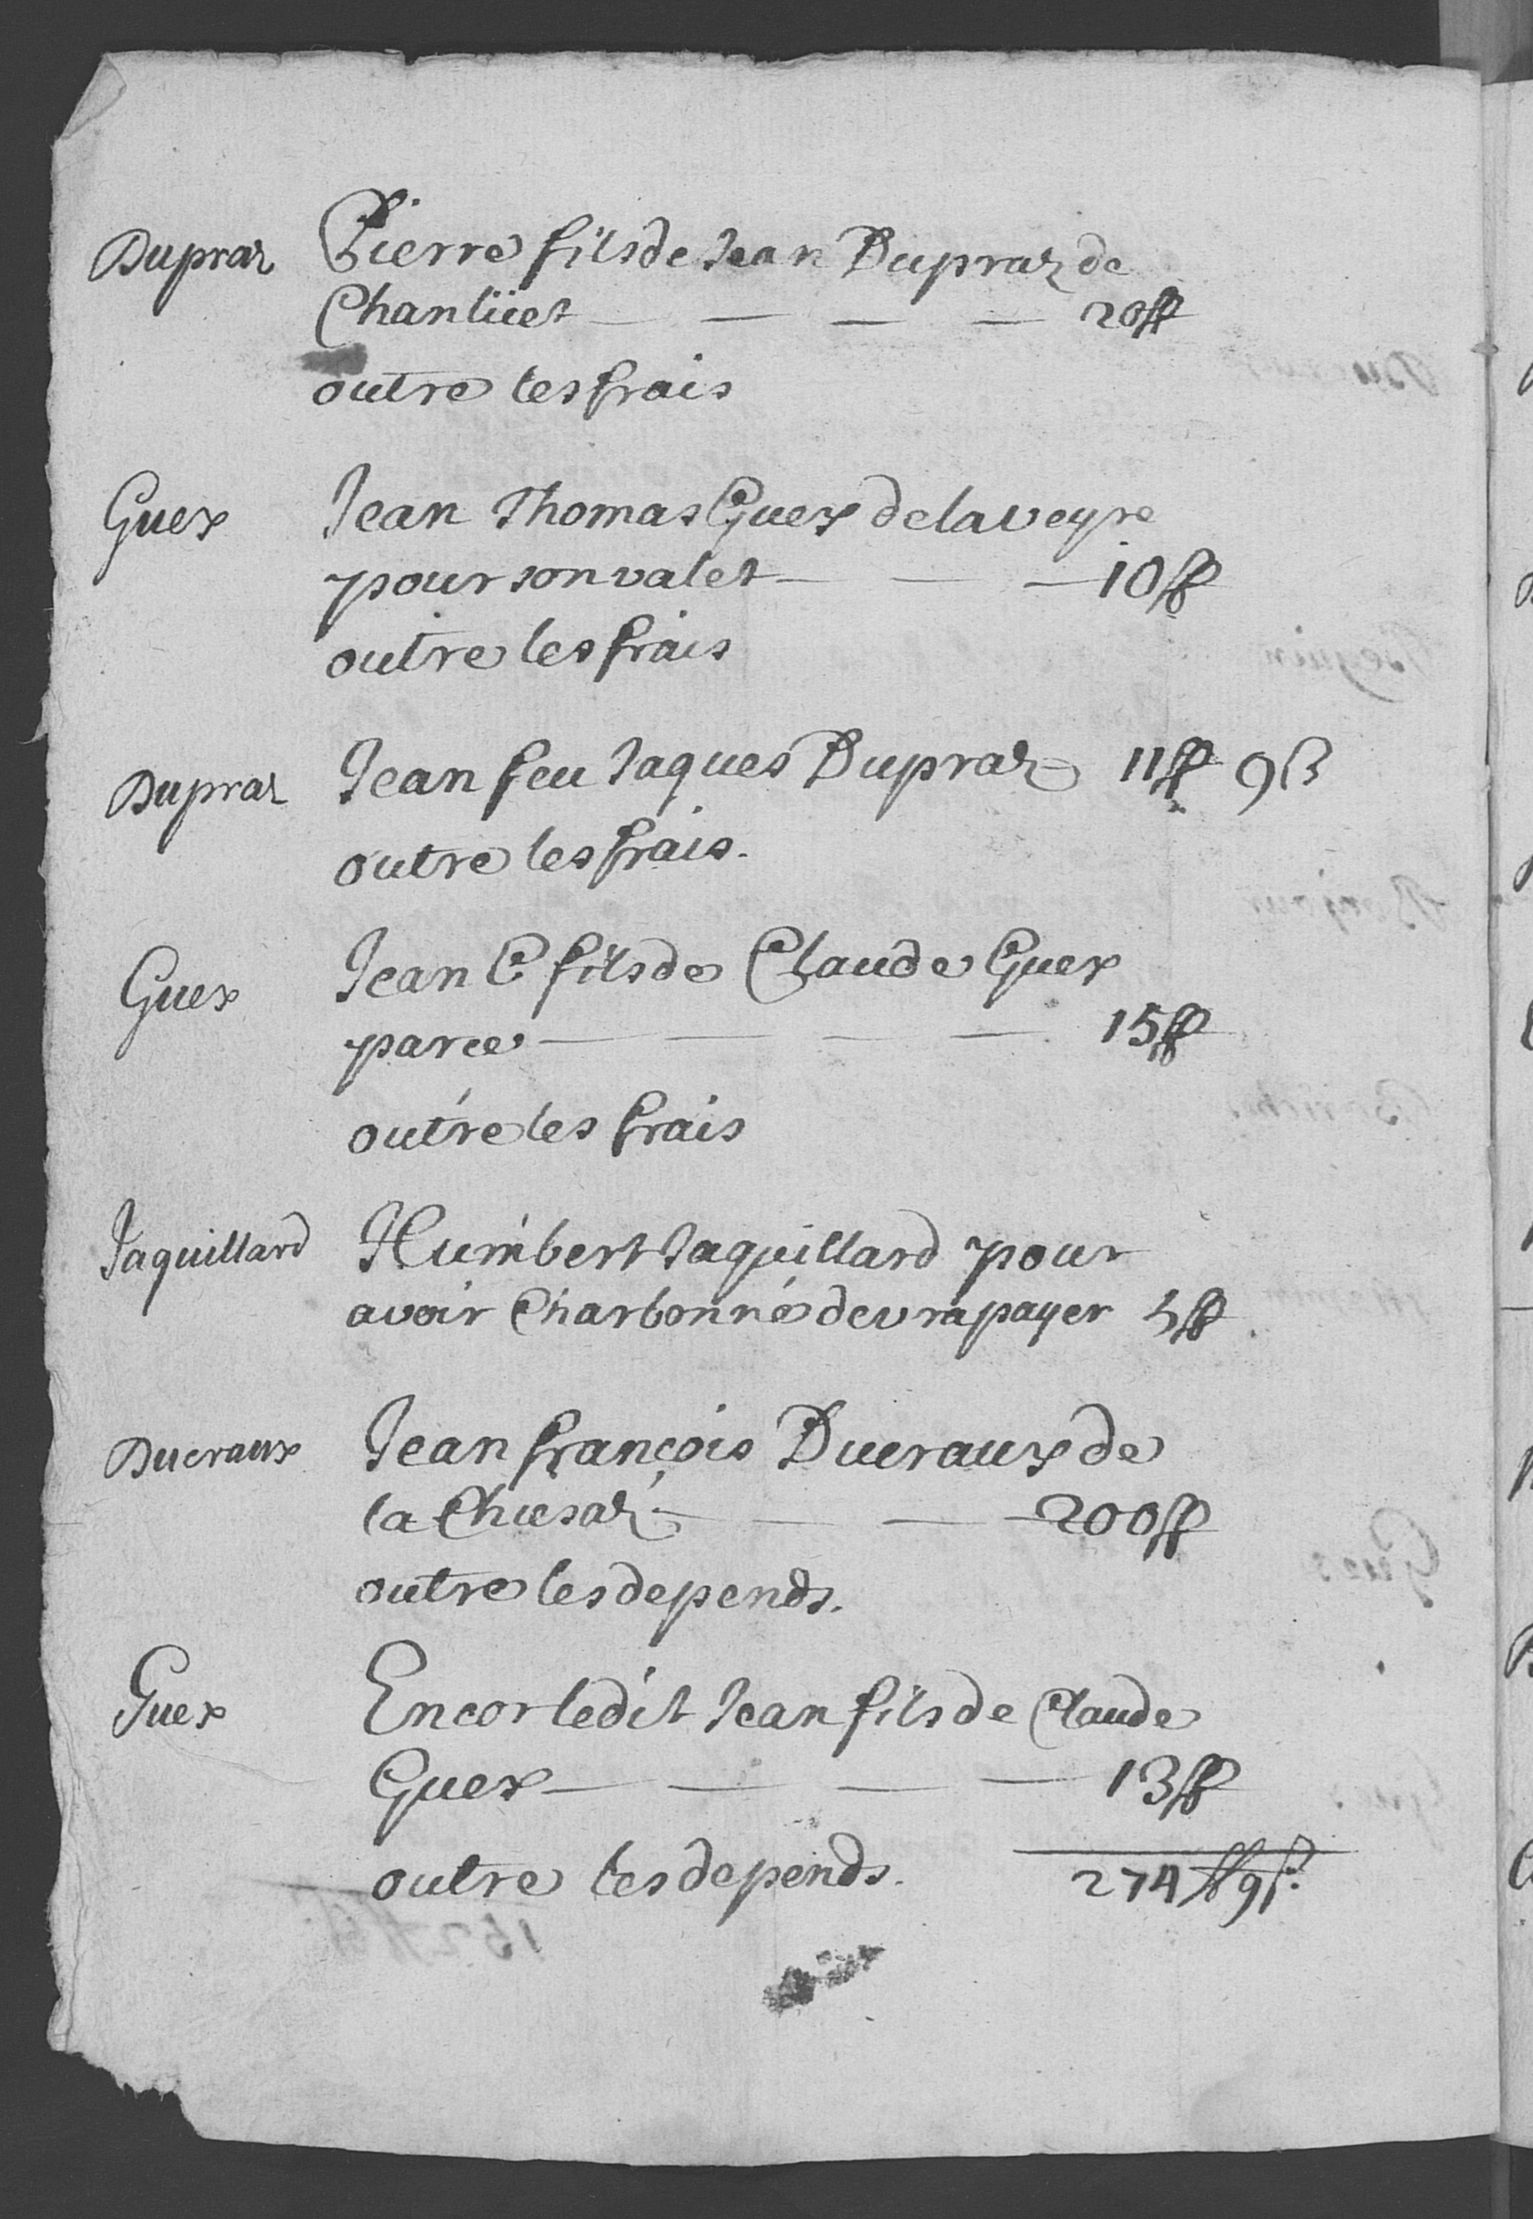 Dupraz Pierre fils de Jean Dupraz de
Chanlüet — — — — 20 ff
outre les frais
Guex Jean Thomas Guex de la veyre
pour son valet — — — 10 ff
outre les frais
Dupraz Jean feu Jaques Dupraz 11 ff 9 ß
outre les frais.
Guex Jean fils de Claude Guex
parce — — — — 15 ff
outre les frais
Jaquillard Humbert Jaquillard pour
avoir Charbonné devra payer 5 ff
Ducraux Jean françois Ducraux de
la Chiesaz — — — 200 ff
outre les depends.
Guex Encor ledit Jean fils de Claude
Guex — — — — 13 ff
outre les depends. 274 ff 9 ß.